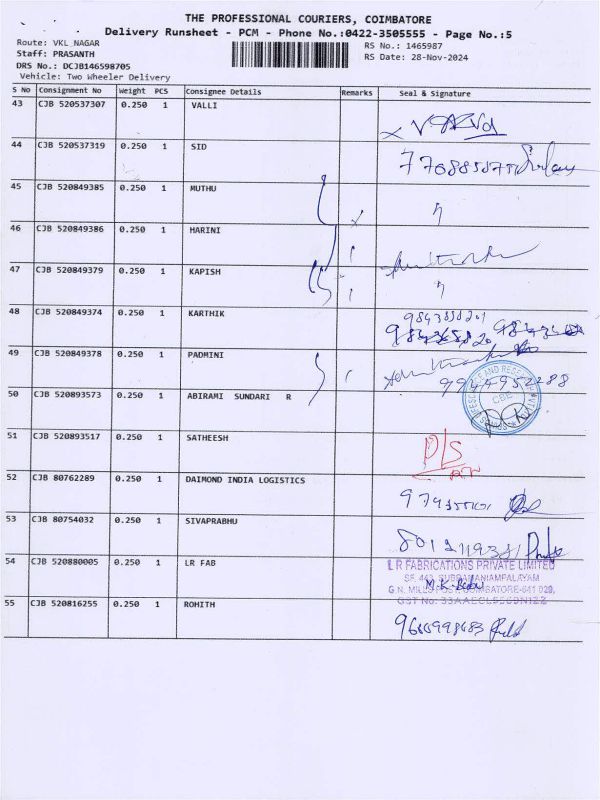 THE PROFESSIONAL COURIERS, COIMBATORE
Delivery Runsheet - PCM - Phone No.:0422-3505555 - Page No.:5
Route: VKL_NAGAR
RS No.: 1465987
Staff: PRASANTH
RS Date: 28-Nov-2024
DRS No.: DCJB146598705
Vehicle: Two Wheeler Delivery
S No Consignment No Weight PCS Consignee Details Remarks Seal & Signature
43 CJB 520537307 0.250 1 VALLI
44 CJB 520537319 0.250 1 SID
45 CJB 520849385 0.250 1 MUTHU
46 CJB 520849386 0.250 1 HARINI
47 CJB 520849379 0.250 1 KAPISH
48 CJB 520849374 0.250 1 KARTHIK
49 CJB 520849378 0.250 1 PADMINI
50 CJB 520893573 0.250 1 ABIRAMI SUNDARI R
51 CJB 520893517 0.250 1 SATHEESH
D/S
52 CJB 80762289 0.250 1 DAIMOND INDIA LOGISTICS
53 CJB 80754032 0.250 1 SIVAPRABHU
54 CJB 520880005 0.250 1 LR FAB
L R FABRICATIONS PRIVATE LIMITED
SF. 443, SUBRAMANIAMPALAYAM
G.N. MILLS POST, COIMBATORE-641 029.
55 CJB 520816255 0.250 1 ROHITH